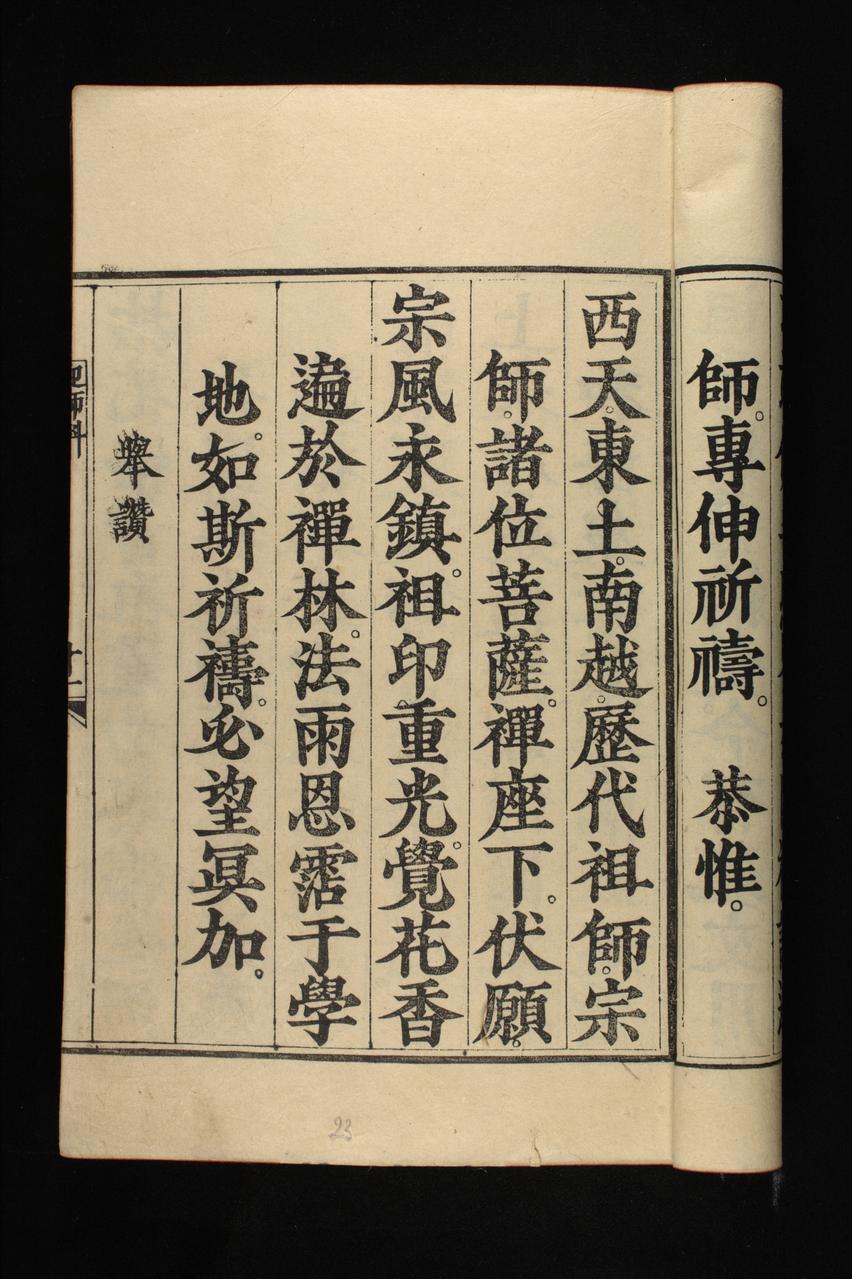 師。專伸祈禱。 恭惟。
西天。東土。南越。歷代祖師。宗
師。諸位菩薩。禪座下。伏願。
宗風永鎮。祖印重光。覺花香
遍於禪林。法雨恩霑于學
地。如斯祈禱。必望冥加。
舉讚
迎師科
廿一
23